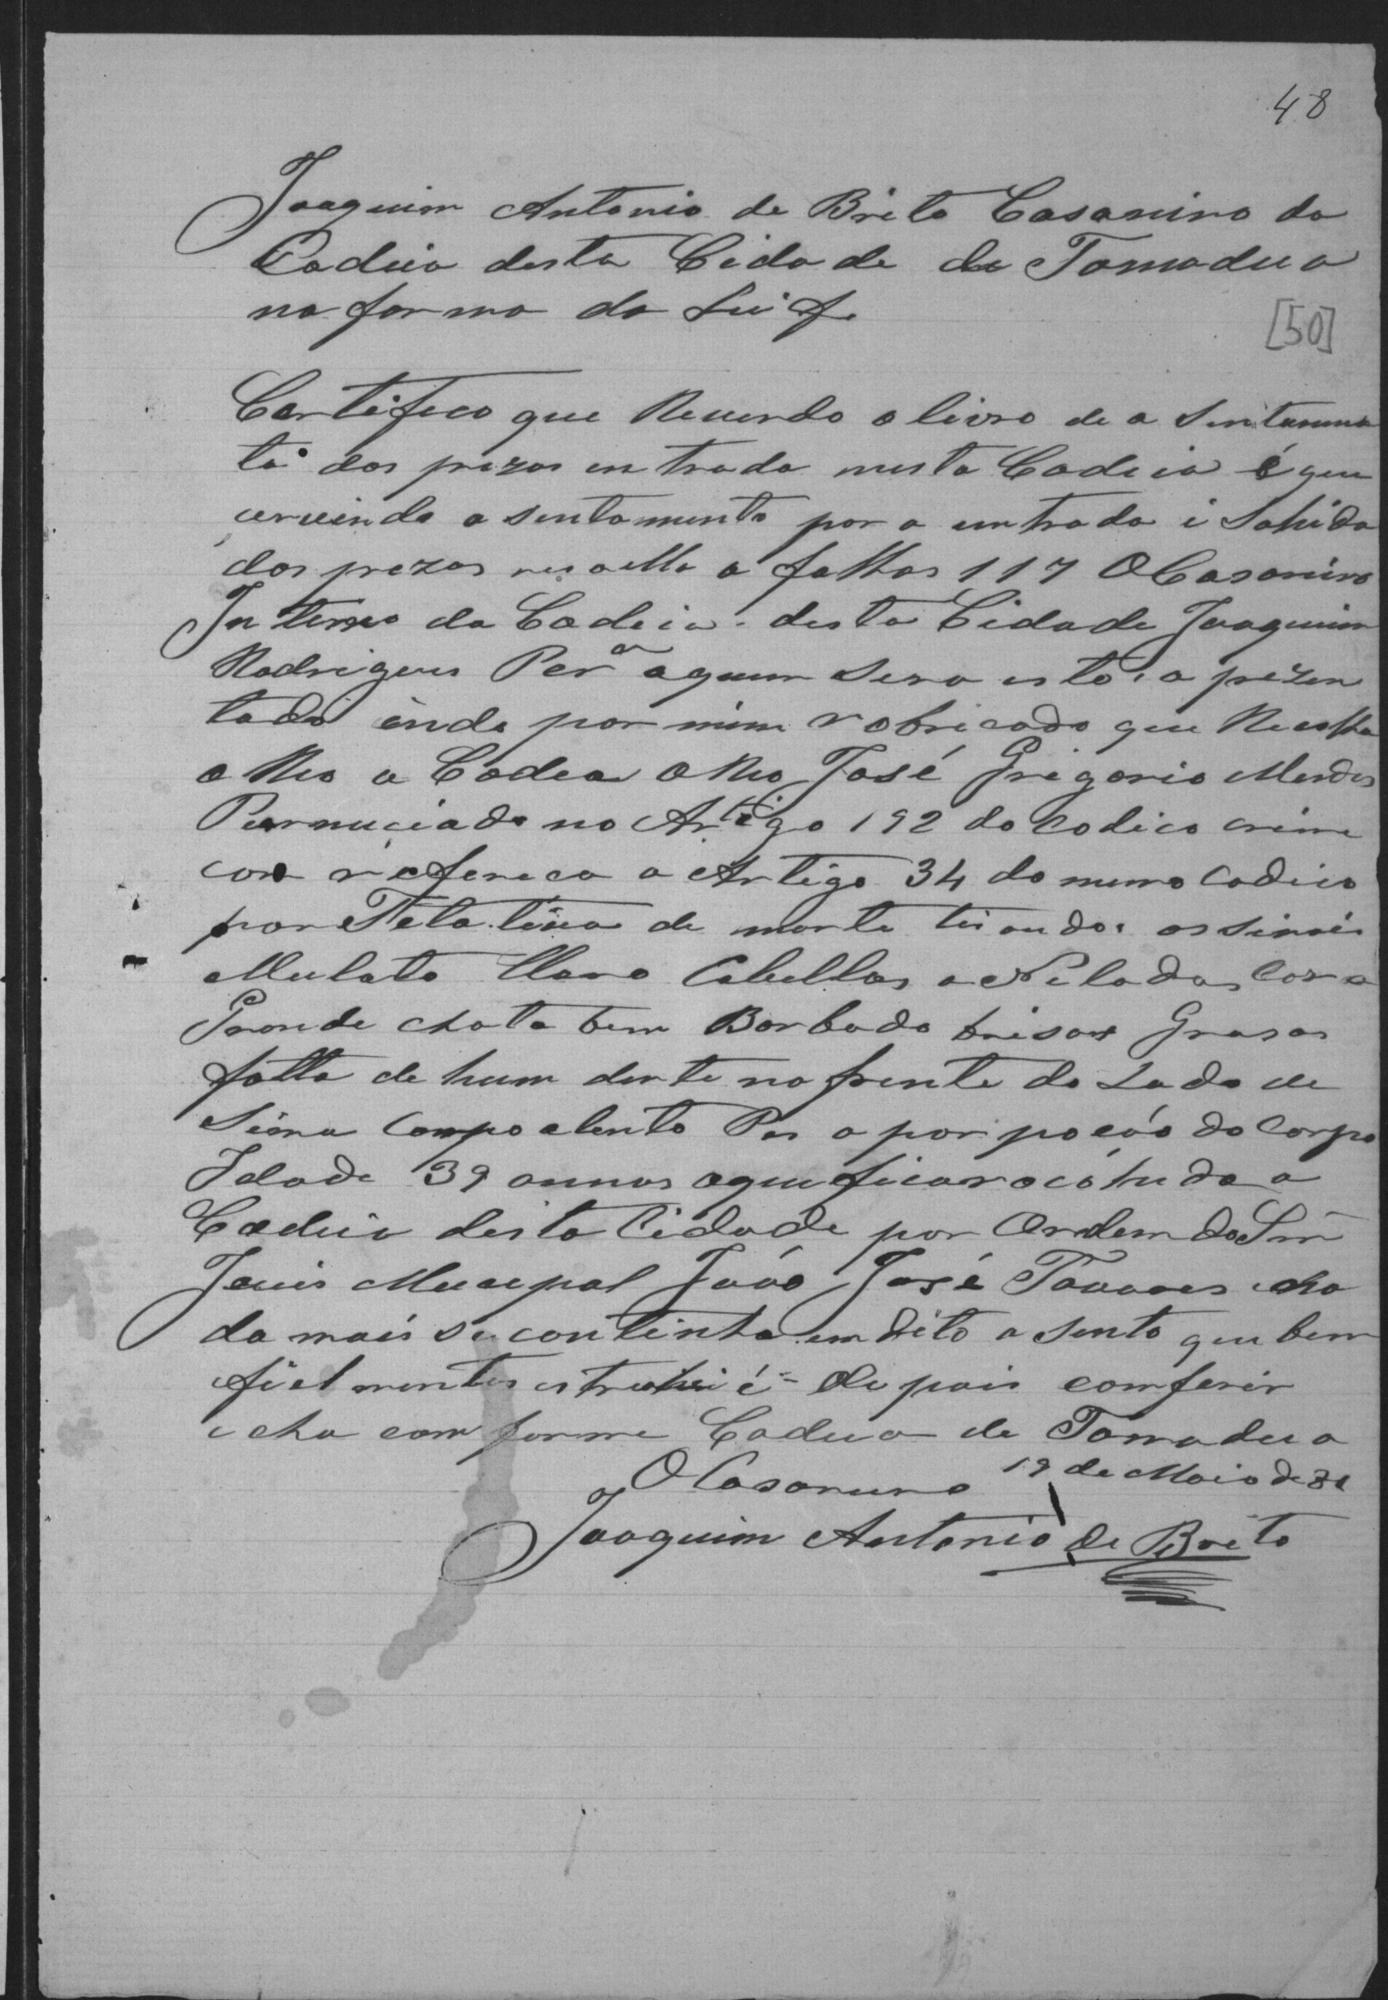 48
Joaquim Antonio de Brito Casarino da
Cadeia desta Cidade de Tamaduca
na forma da Lei f.
[50]
Certifico que Revendo o livro de a Sentamen
to dos prezos entrada nesta Cadeia é que
cervindo a sentamento por a entrada i Sahida
dos prezos nella a folhas 117 O Casarino
Interno da Cadeia desta Cidade Joaquim
Rodrigues Perª aquem sera isto aprezen
tado indo por mim robricado que Recolha
o Reo a Cadea o Reo José Grigorio Mendes
Pernuciado no Artigo 192 do codico crime
com refereca a Artigo 34 do mmo codico
por Tetativa de morte tirando os sinais
Mulato Claro Cabellos a Nelados Cor a
Grande chata bem Borbado beisos Grasos
falta de hum dente na frente do Lado de
Sima Corpo alento Pes a porpocáo do Corpo
Idade 39 annos aque fica recolhido a
Cadeia desta Cidade por Ordem do Snr
Jouis Mucupal Joáo José Tavares cha
da mais se continha em dito a Sento que bem
fielmente estrahi é depois comferir
i cha comforme Cadeia de Tamaduca
O Casarino 19 de Maio de 81
Joaquim Antonio de Brito